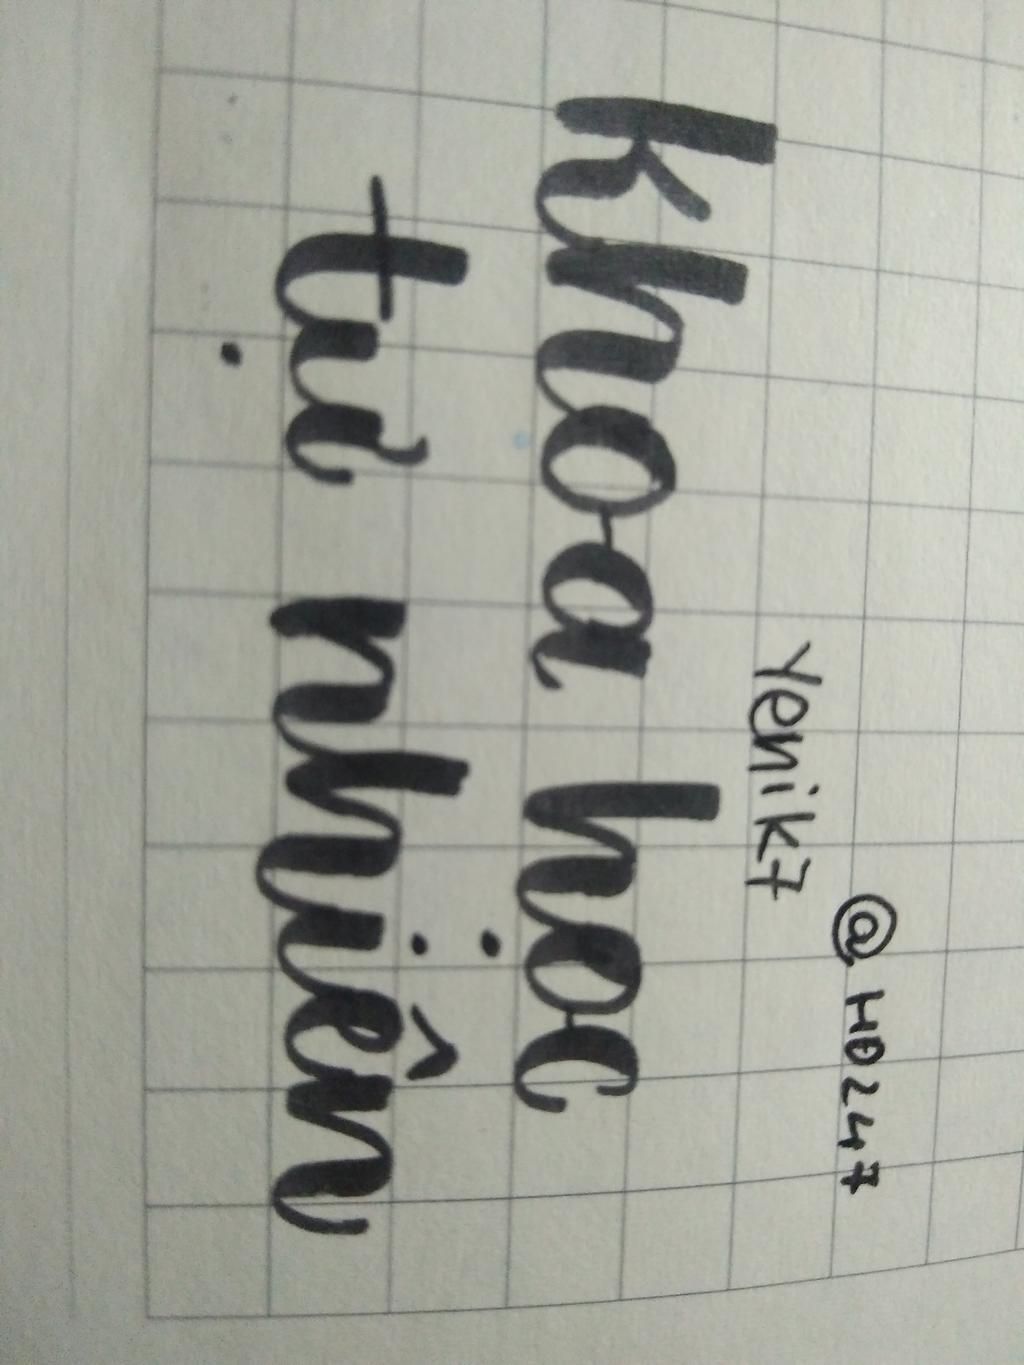 @HD247
Yenik7
Khoa học
tự nhiên